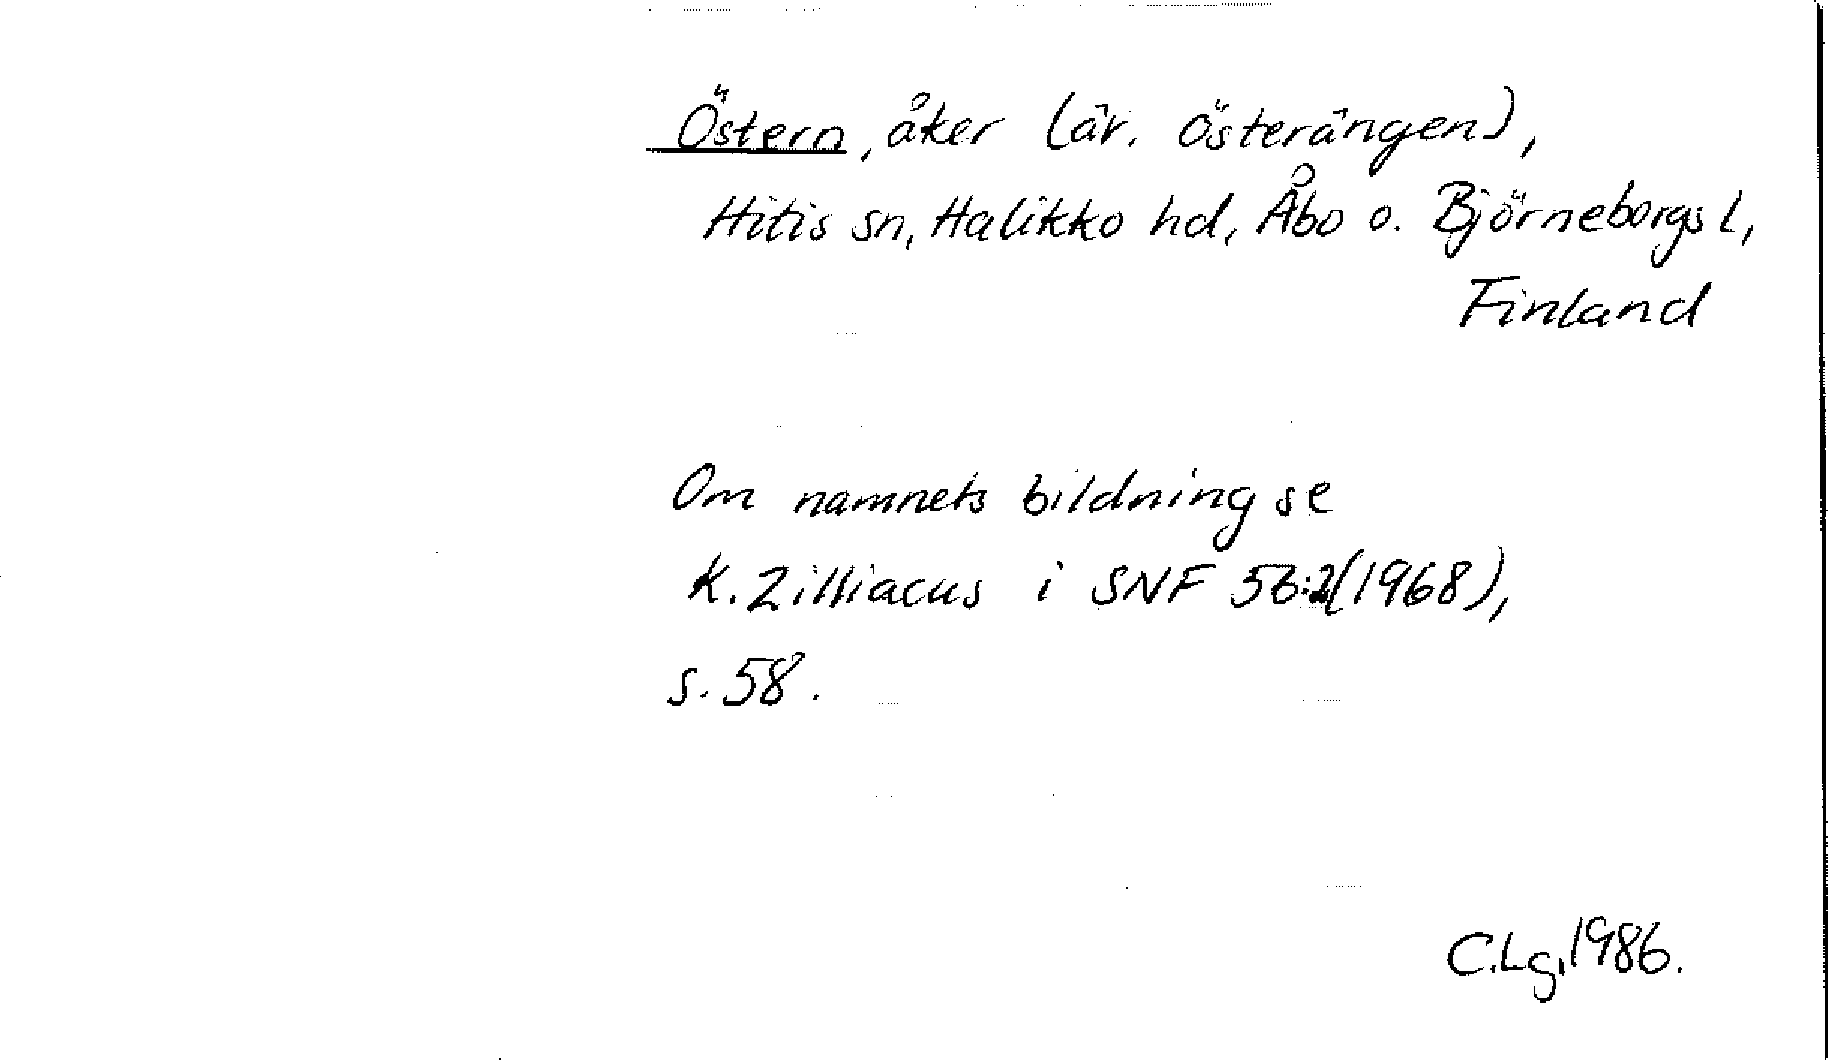 Östern, åker (äv. Österängen),
Hitis sn, Halikko hd, Åbo o. Björneborgs l,
Finland
Om namnets bildning se
K. Zilliacus i SNF 56:2(1968),
s. 58.
C.Lg, 1986.